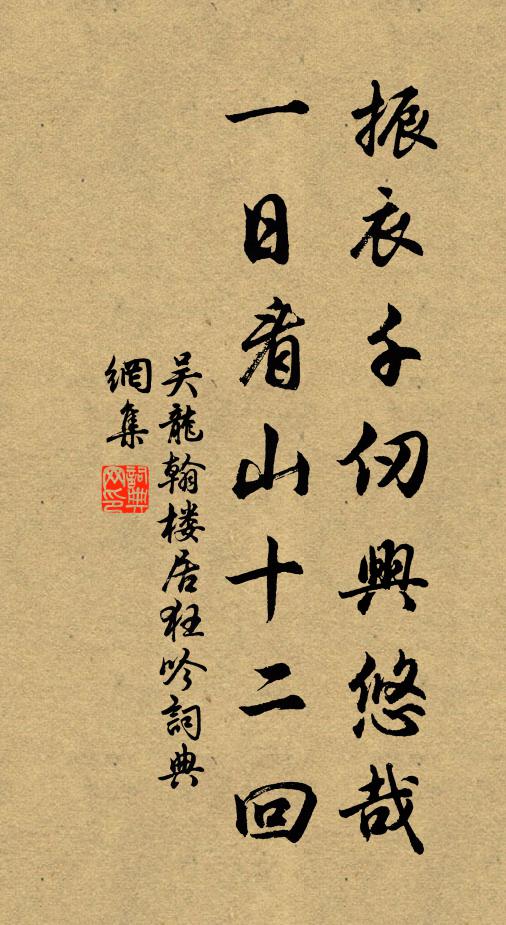 振衣千仞興悠哉
一日看山十二回
吴龍翰楼居狂吟詞典
網集
詞典
网印